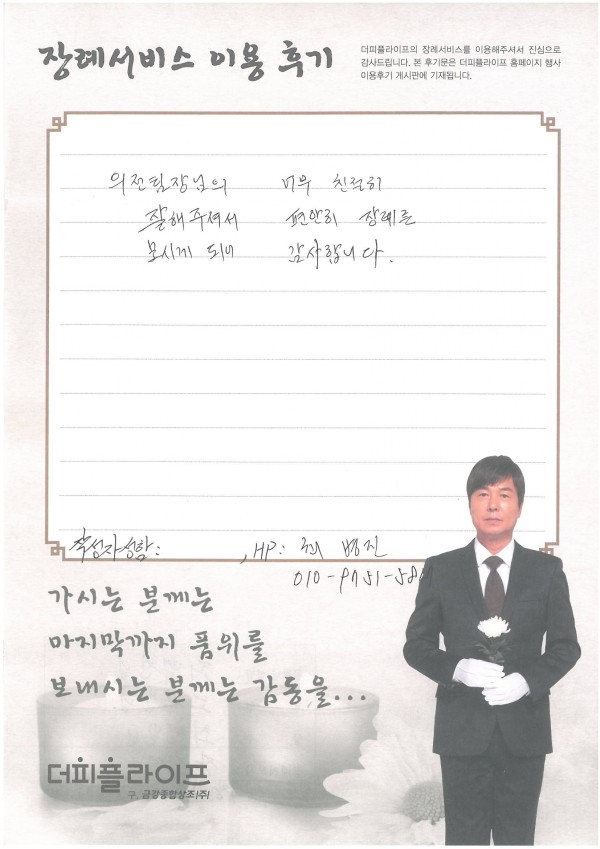 장례서비스 이용 후기
더피플라이프의 장례서비스를 이용해주셔서 진심으로
감사드립니다. 본 후기문은 더피플라이프 홈페이지 행사
이용후기 게시판에 기재됩니다.
의전팀장님의 너무 친절히
잘해주셔서 편안히 장례를
모시게 되어 감사합니다.
작성자성함: , HP: 최병진
010-9751-58
가시는 분께는
마지막까지 품위를
보내시는 분께는 감동을...
더피플라이프
구. 금강종합상조(주)